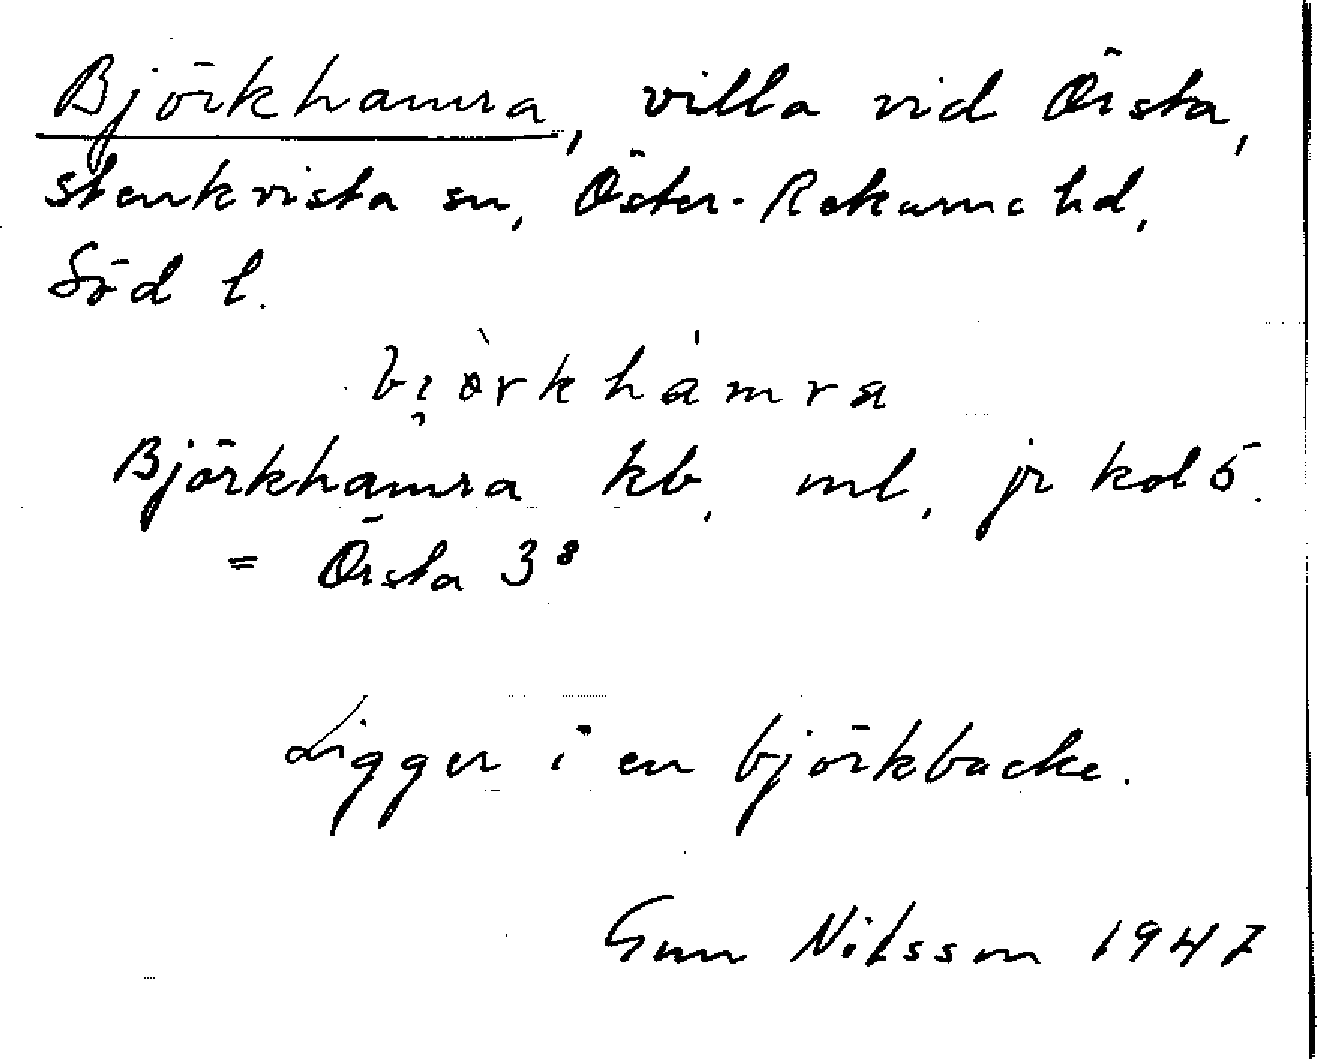 Björkhamra, villa vid Örsta,
Stenkvista sn, Öster-Rekarne hd,
Söd l.
bi̯ö̀rkhámra
Björkhamra kb, ml, jr kol 5.
= Örsta 3⁸
Ligger i en björkbacke.
Gun Nilsson 1947